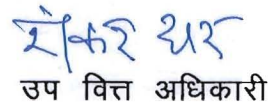 शेखर धर
उप वित्त अधिकारी